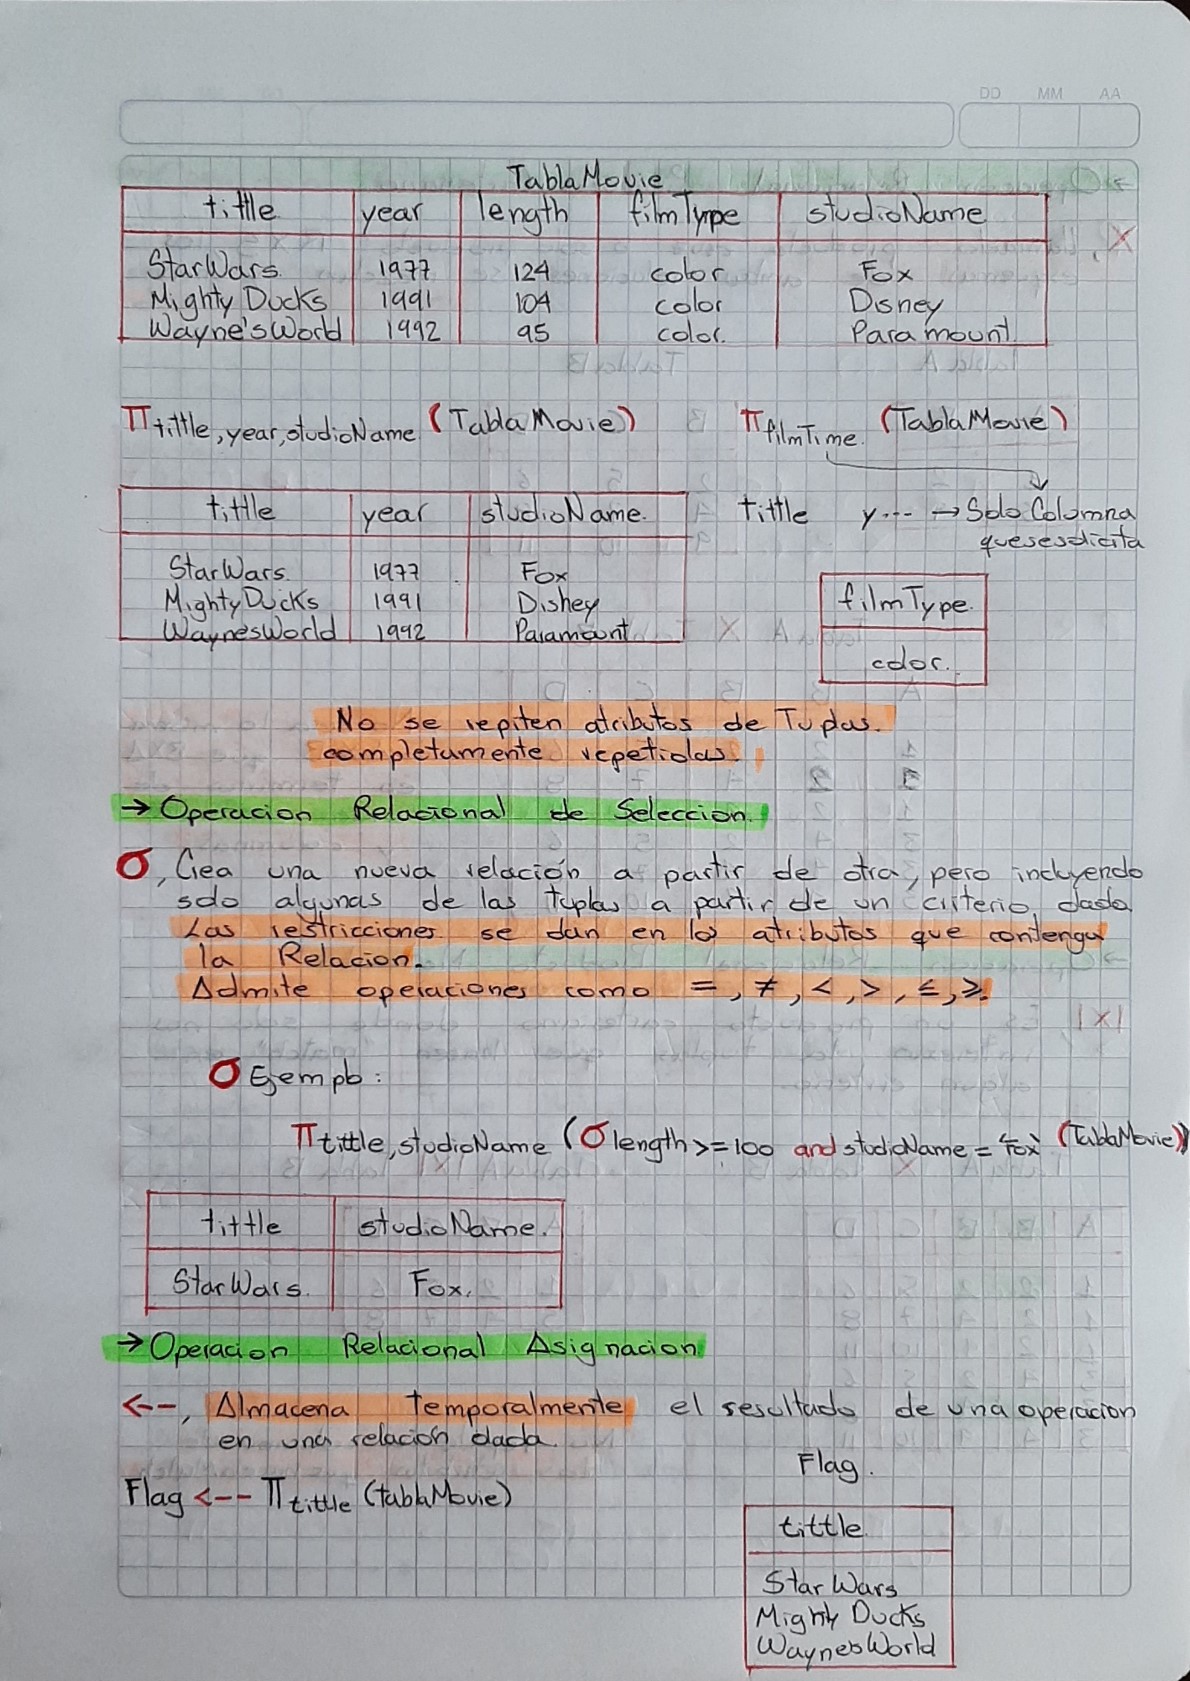 DD MM AA
TablaMovie
tittle year length filmType studioName
StarWars. 1977 124 color Fox
Mighty Ducks 1991 104 color Disney
Wayne'sWorld 1992 95 color. Paramount
π tittle, year, studioName (TablaMovie) π filmTime. (TablaMovie)
tittle y... → Solo Columna
que se solicita
tittle year studioName.
StarWars. 1977 Fox
MightyDucks 1991 Disney
WaynesWorld 1992 Paramount
filmType.
color.
No se repiten atributos de Tuplas.
completamente repetidas.
→ Operacion Relacional de Seleccion.
σ, Crea una nueva relación a partir de otra, pero incluyendo
solo algunas de las tuplas a partir de un criterio dado.
Las restricciones se dan en lo atributos que contenga
la Relacion.
Admite operaciones como =, ≠, <, >, ≤, ≥.
σ Ejemplo:
π tittle, studioName (σ length >= 100 and studioName = 'Fox' (TablaMovie))
tittle studioName.
StarWars. Fox.
→ Operacion Relacional Asignacion
<--, Almacena Temporalmente el resultado de una operacion
en una relación dada.
Flag <-- π tittle (tablaMovie)
Flag.
tittle
Star Wars
Mighty Ducks
WaynesWorld